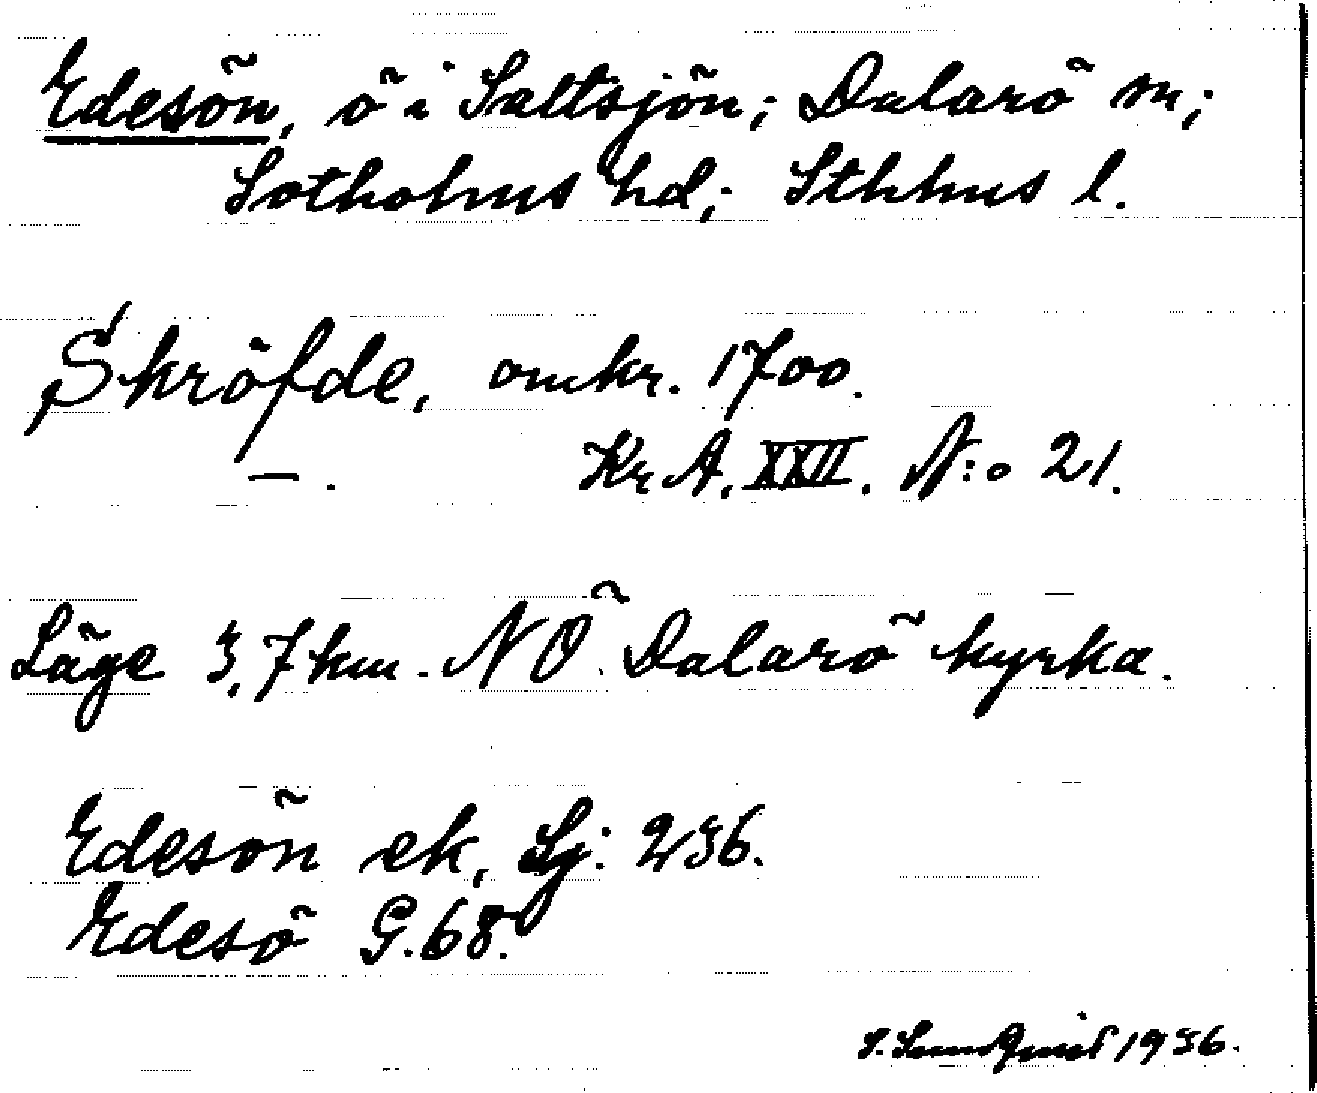 Edesön, ö i Saltsjön; Dalarö sn;
Sotholms hd; Sthlms l.
Skröfde, omkr. 1700.
— . Kr. A. XXII. N:o 21.
Läge 3,7 km. NÖ. Dalarö kyrka.
Edesön ek, Sj: 236.
Edesö G. 68.
S. Sundqvist 1936.